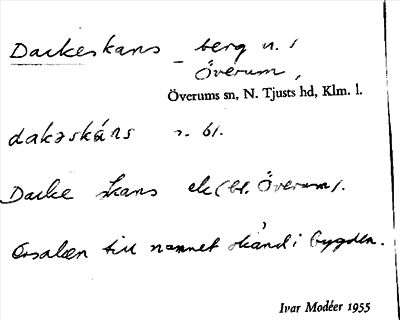 Dackeskans – berg n. /
Överum,
Överums sn, N. Tjusts hd, Klm. l.
dakəskáns n. bl.
Dacke skans ek (bl. Överum).
Orsaken till namnet okänd i bygden.
Ivar Modéer 1955